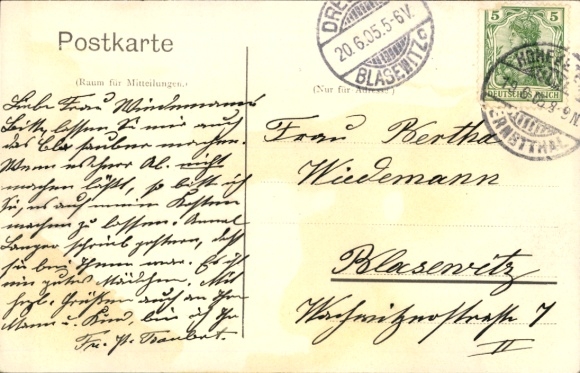 Postkarte
(Raum für Mitteilungen.)
Liebe Frau Wiedemann!
Bitte, lassen Sie mir auch
das Clo sauber machen.
Wenn es Herr Al. nicht
machen läßt, so bitt ich
Sie, es auf meine Kosten
machen zu lassen. Anna
Langer schrieb gestern, daß
sie bei Ihnen war. Es ist
ein gutes Mädchen. Mit
herzl. Grüßen auch an Ihr
Mann u. Kind, bin ich Ihr
Fr. P. Traubert.
20.6.05.5-6V.
BLASEWITZ c
5 5
DEUTSCHES REICH
(Nur für Adresse.)
Frau Bertha
Wiedemann
Blasewitz
Wachwitzerstraße 7
II